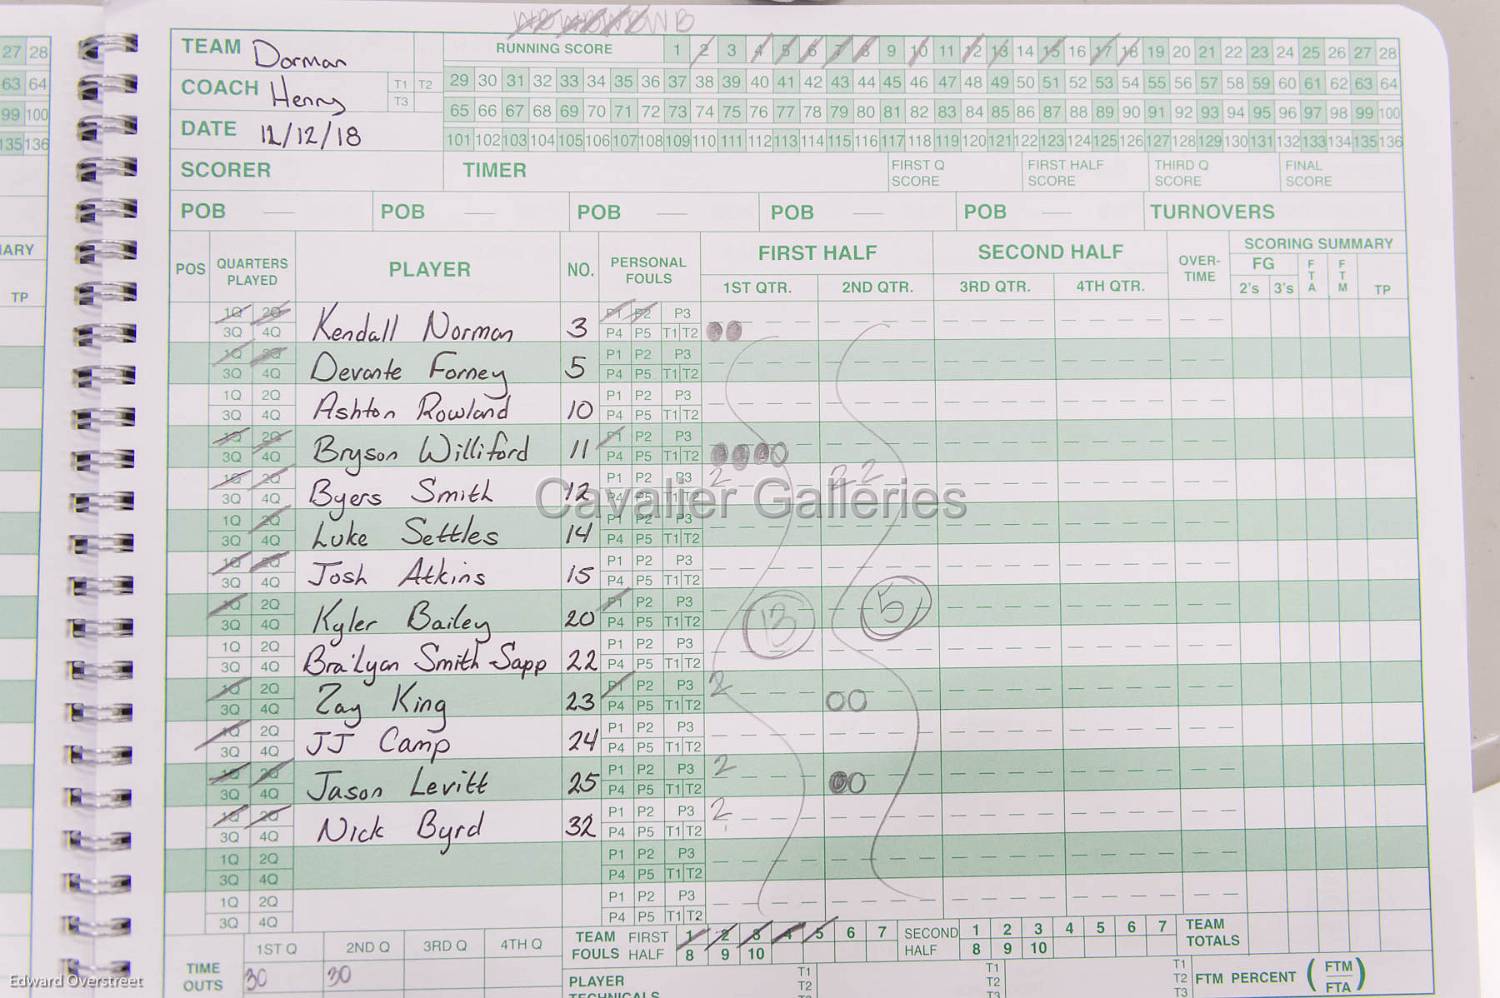 WBWBWBWB
27 28 TEAM Dorman RUNNING SCORE 1 2 3 4 5 6 7 8 9 10 11 12 13 14 15 16 17 18 19 20 21 22 23 24 25 26 27 28
63 64 COACH Henry T1 T2 T3 29 30 31 32 33 34 35 36 37 38 39 40 41 42 43 44 45 46 47 48 49 50 51 52 53 54 55 56 57 58 59 60 61 62 63 64
99 100 65 66 67 68 69 70 71 72 73 74 75 76 77 78 79 80 81 82 83 84 85 86 87 88 89 90 91 92 93 94 95 96 97 98 99 100
135 136 DATE 12/12/18 101 102 103 104 105 106 107 108 109 110 111 112 113 114 115 116 117 118 119 120 121 122 123 124 125 126 127 128 129 130 131 132 133 134 135 136
SCORER TIMER FIRST Q SCORE FIRST HALF SCORE THIRD Q SCORE FINAL SCORE
POB POB POB POB POB TURNOVERS
ARY POS QUARTERS PLAYED PLAYER NO. PERSONAL FOULS FIRST HALF SECOND HALF OVER-TIME SCORING SUMMARY
TP 1ST QTR. 2ND QTR. 3RD QTR. 4TH QTR. FG 2's 3's FTA FTM TP
1Q 2Q P1 P2 P3
3Q 4Q Kendall Norman 3 P4 P5 T1 T2
1Q 2Q P1 P2 P3
3Q 4Q Devante Forney 5 P4 P5 T1 T2
1Q 2Q P1 P2 P3
3Q 4Q Ashton Rowland 10 P4 P5 T1 T2
1Q 2Q P1 P2 P3
3Q 4Q Bryson Williford 11 P4 P5 T1 T2
1Q 2Q P1 P2 P3 2 2 2
3Q 4Q Byers Smith 12 P4 P5 T1 T2
Cavalier Galleries
1Q 2Q P1 P2 P3
3Q 4Q Luke Settles 14 P4 P5 T1 T2
1Q 2Q P1 P2 P3
3Q 4Q Josh Atkins 15 P4 P5 T1 T2
1Q 2Q P1 P2 P3 13 5
3Q 4Q Kyler Bailey 20 P4 P5 T1 T2
1Q 2Q P1 P2 P3
3Q 4Q Bra'Lyan Smith-Sapp 22 P4 P5 T1 T2
1Q 2Q P1 P2 P3 2
3Q 4Q Zay King 23 P4 P5 T1 T2
1Q 2Q P1 P2 P3
3Q 4Q JJ Camp 24 P4 P5 T1 T2
1Q 2Q P1 P2 P3 2
3Q 4Q Jason Levitt 25 P4 P5 T1 T2
1Q 2Q P1 P2 P3 2
3Q 4Q Nick Byrd 32 P4 P5 T1 T2
1Q 2Q P1 P2 P3
3Q 4Q P4 P5 T1 T2
1Q 2Q P1 P2 P3
3Q 4Q P4 P5 T1 T2
1ST Q 2ND Q 3RD Q 4TH Q TEAM FOULS FIRST HALF 1 2 3 4 5 6 7 8 9 10 SECOND HALF 1 2 3 4 5 6 7 8 9 10 TEAM TOTALS
TIME OUTS 30 30 PLAYER TECHNICALS T1 T2 T1 T2 T3 T1 T2 T3 FTM PERCENT (FTM FTA)
Edward Overstreet